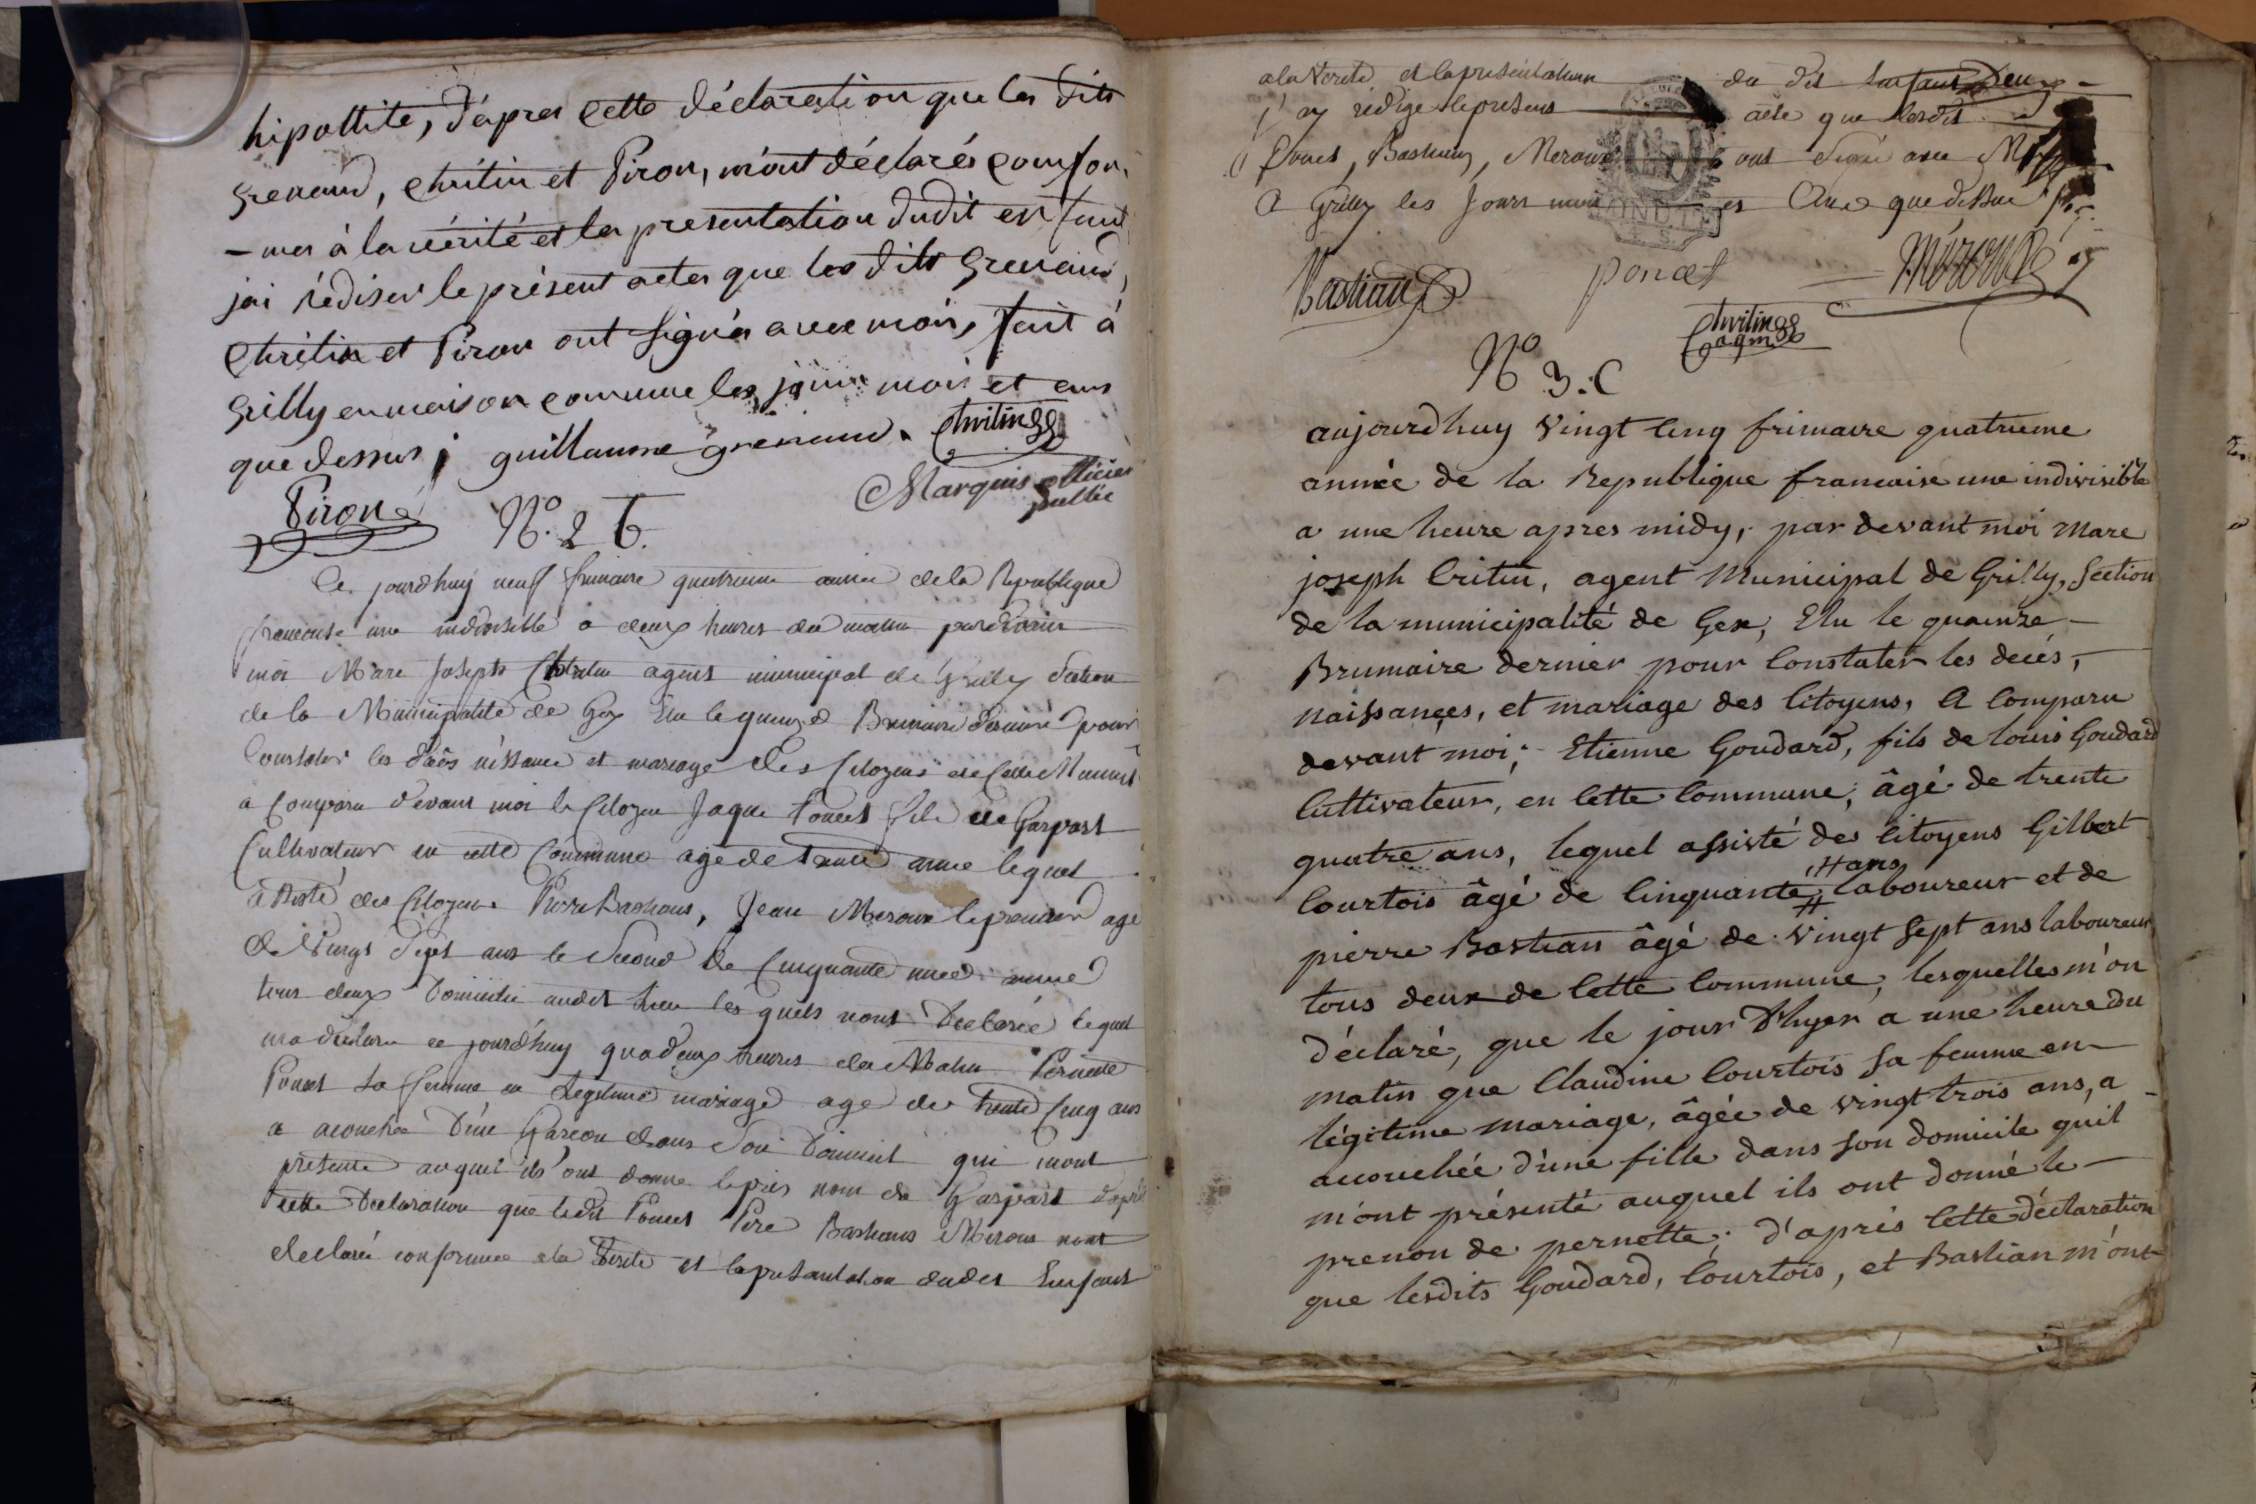 hipollite, d'après cette déclaration que les dits
grenaud, chritin et Piron, m'ont déclarés confor
-mes à la vérité et la presentation dudit enfant
jai rédiser le présent actes que les dits Grenaud,
chritin et Piron ont signés avec mois, fait à
Grilly en maison commune les jour mois et ans
que dessus, guillaume grenaud. Chritin
Piron Marquis officier
public
N.o 2 T.
Ce jourdhuy neuf frimaire quatrieme année de la Republique
francoise une indivisible a deux heures du matin pardevant
moi Marc Joseph Chritin agent municipal de Grilly Section
de la Municipalité de Gex Elu le quinze Brumaire dernier pour
Constater les décès néssance et mariage des Citoyens de cette
a Comparu devant moi le Citoyen Jaque Poncet fils de Gaspart
Cultivateur en cette Commune age de trante anné lequel
assisté des Citoyens Pierre Bastians, Jean Meroux le premier age
de Vingt sept ans le second de Cinquante anné
tous deux Domicilié audit lieu les quels nous Declaré lequel
ma déclare ce jourdhuy qua deux heures du Matin Pernette
Poncet sa femme en legitime mariage age de trente Cinq ans
a acouchée D'une Garcon dans son Domicil qui mont
présenté auquel ils ont donne le prés nom de Gaspart d'apré
cette Declaration que ledit Poncet Pere Bastians Meroux mont
declaré conforme a la Verite et la présantation dudit Enfant
a la Verite et la presentation du dit Enfant
j'ay redige le present acte que lesdit
Poncet, Bastians, Meroux ont Signé avec
A Grilly les Jours mois et Ans que dessus
Bastian poncet Méroux
Chritin
agm
N.o 3. C
aujourdhuy Vingt Cinq frimaire quatrieme
année de la Republique francaise une indivisible
a une heure apres midy, par devant moi Marc
joseph Critin, agent Municipal de Grilly, Section
de la municipalité de Gex, Elu le quainze –
Brumaire dernier pour Constater les decés, –
naissances, et mariage des Citoyens, A Comparu
devant moi, Etienne Goudard, fils de louis Goudard
Cultivateur, en Cette Commune, âgé de trente
quatre ans, lequel assisté des Citoyens Gilbert
# ans
Courtois âgé de Cinquante # laboureur et de
pierre Bastian âgé de Vingt sept ans laboureur
tous deux de Cette Commune, lesquelles m'on
déclaré, que le jour d'hyer a une heure du
matin que Claudine Courtois sa femme en
légitime mariage, âgée de vingt trois ans, a –
acouchée d'une fille dans son domicile quil
m'ont présenté auquel ils ont donné le –
prenon de pernette. d'aprés Cette déclaration
que lesdits Goudard, Courtois, et Bastian m'ont